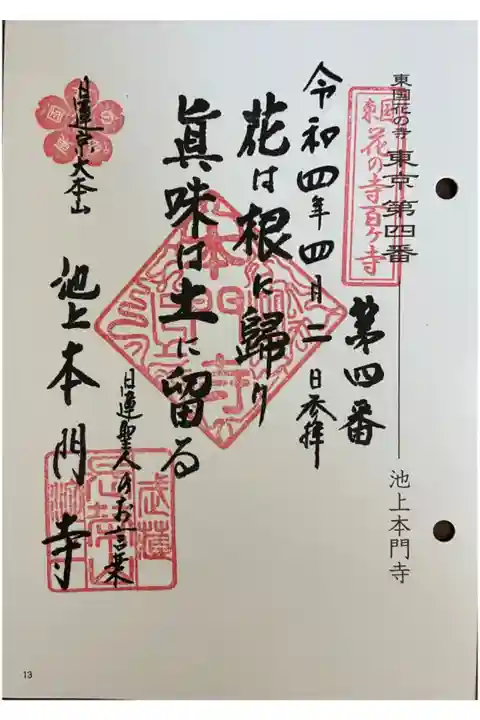 東国花の寺 東京 第四番
池上本門寺
東国
花の寺百ヶ寺
第四番
令和四年四月二日参拝
花は根に歸り
眞味は土に留る
日蓮聖人のお言葉
日蓮宗大本山
池上本門寺
本門寺
13